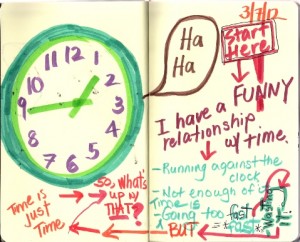 12
1
2
3
4
5
6
7
8
9
10
11
Ha
Ha
3/7/12
Start
Here!
I have a FUNNY
relationship
w/ time.
- Running against the
clock
- Not enough of it
Time is
- Going too fast
fast
BUT
Wasting
it
So, what's
up w/
THAT?
Time is
just
Time